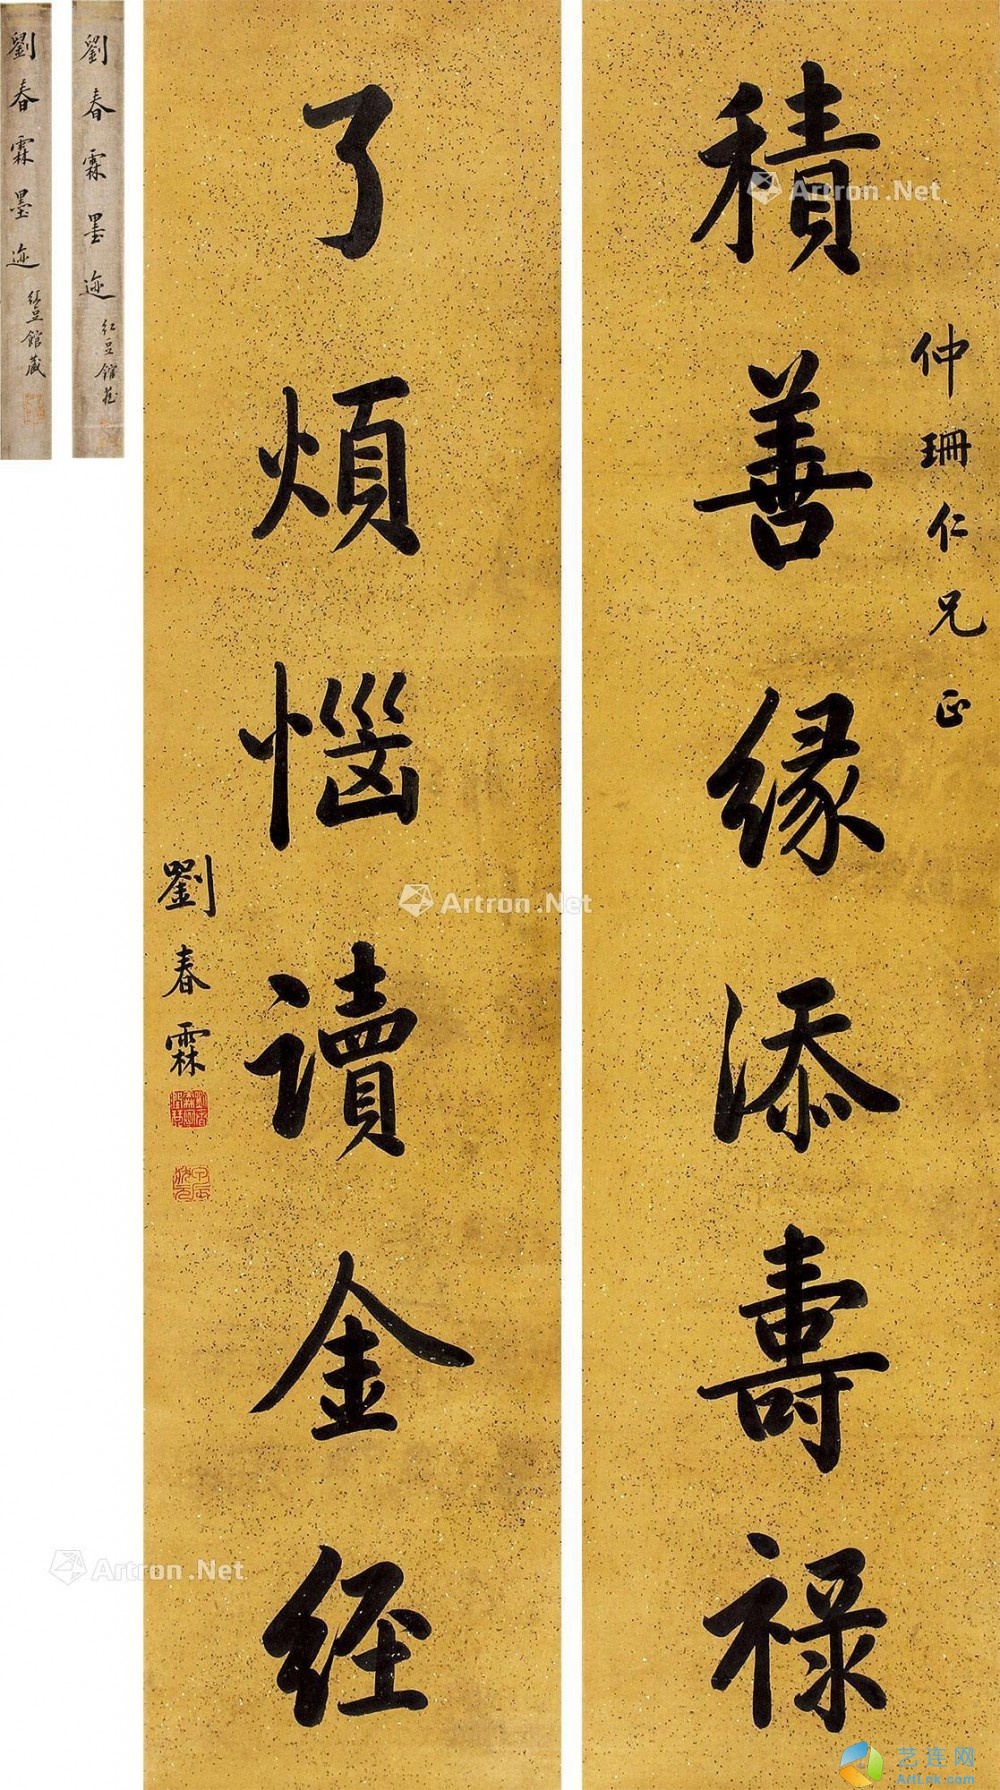 積善緣添壽祿
仲珊仁兄正
了煩惱讀金經
劉春霖
劉春霖墨迹
紅豆館藏
劉春霖墨迹
紅豆館藏
Artron.Net
Artron.Net
Artron.Net
艺连网
ArtLnk.com